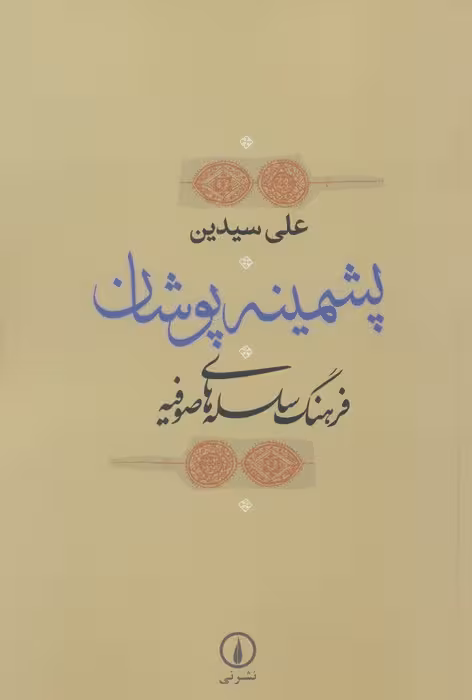 علی سیدین
پشمینه پوشان
فرهنگ سلسله های صوفیه
نشر نی